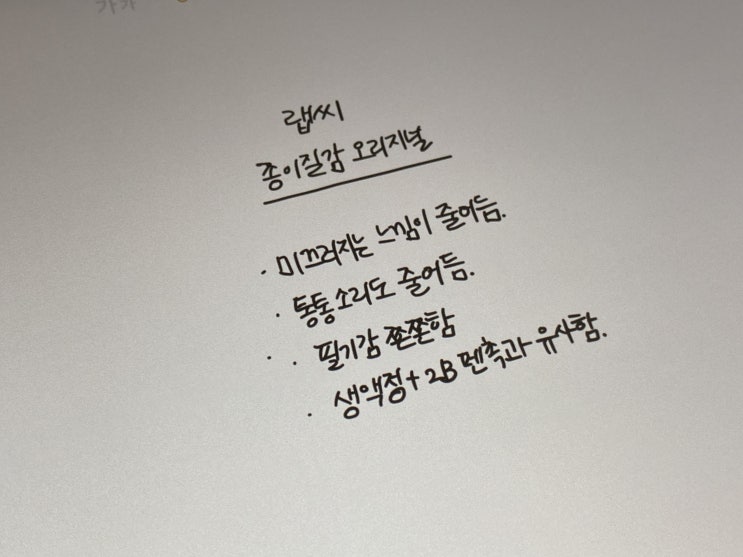 랩씨
종이질감 오리지널
· 미끄러지는 느낌이 줄어듬.
· 통통소리도 줄어듬.
· · 필기감 쫀쫀함
· 생액정 + 2B 펜촉과 유사함.